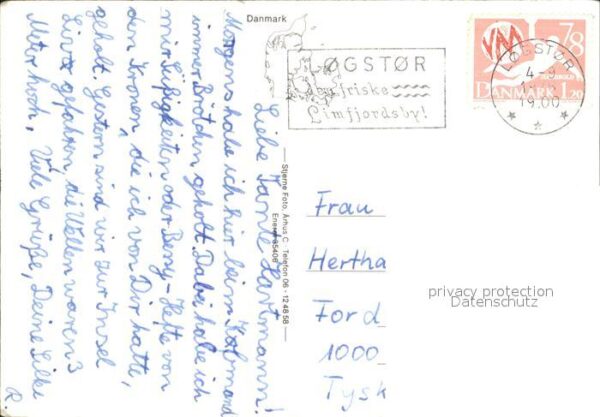 Danmark
LØGSTØR
den friske
Limfjordsby!
VM 78
DANMARK 1.20
LØGSTØR
19.00
Liebe Tante Hartmann!
Morgens habe ich hier beim Købmand
immer Brötchen geholt. Dabei habe ich
mir Süßigkeiten oder Benny-Hefte von
den Kronen, die ich von Dir hatte,
geholt. Gestern sind wir zur Insel
Livø gefahren, die Wellen waren 3
Meter hoch, Viele Grüße, Deine Silke
R.
Stjerne Foto, Århus C. Telefon 06 - 12 48 58
Eneret 35406
Frau
Hertha
Ford
1000
Tysk
privacy protection
Datenschutz